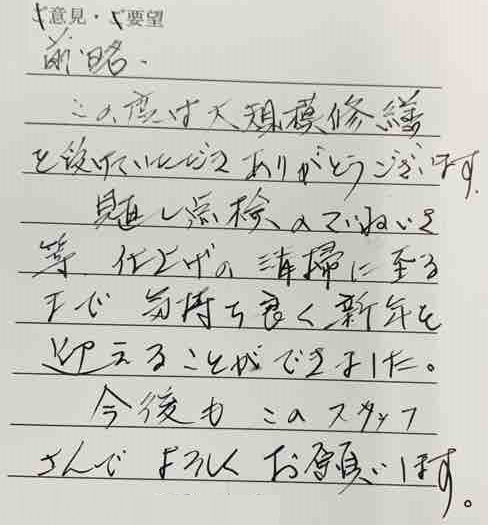 ご意見・ご要望
前略.
この度は大規模修繕
を設けていただきありがとうございます.
見直し点検のていねいさ
等、仕上げの清掃に至る
まで気持ち良く新年を
迎えることができました。
今後もこのスタッフ
さんでよろしくお願いします。